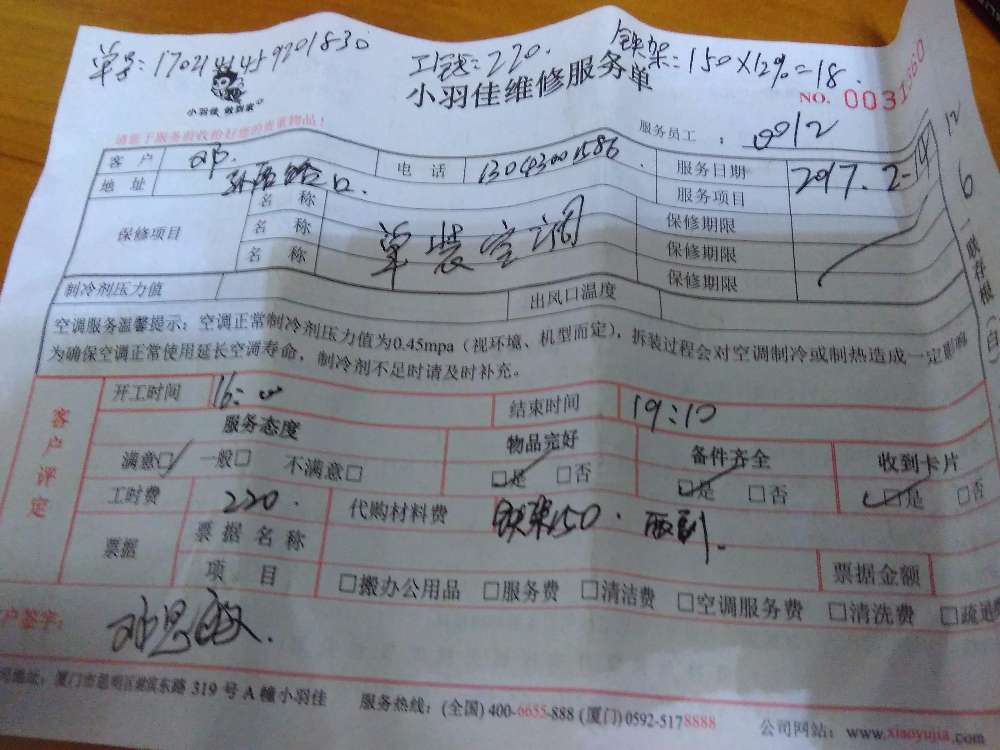 单号:1702144459201830 工钱:220. 铁架:150×12%=18.
小羽佳 做到家
小羽佳维修服务单
NO. 0031
请您于服务前收拾好您的贵重物品!
服务员工: 0012
客户 邓. 电话 13043001586 服务日期 2017.2-14
地址 服务项目
保修项目 名称 保修期限
名称 单装空调 保修期限
名称 保修期限
制冷剂压力值 出风口温度
一联存根(白)
空调服务温馨提示:空调正常制冷剂压力值为0.45mpa(视环境、机型而定),拆装过程会对空调制冷或制热造成一定影响
为确保空调正常使用延长空调寿命,制冷剂不足时请及时补充。
客户评定
开工时间 16:00 结束时间 19:10
服务态度 物品完好 备件齐全 收到卡片
满意□ 一般□ 不满意□ □是 □否 □是 □否 □是 □否
工时费 220. 代购材料费 铁架150.
票据 票据名称 票据金额
项目 □搬办公用品 □服务费 □清洁费 □空调服务费 □清洗费 □疏通
户签字: 邓思敏.
司地址:厦门市思明区湖滨东路 319 号 A 幢小羽佳 服务热线:(全国) 400-6655-888 (厦门) 0592-5178888 公司网站:www.xiaoyujia.com